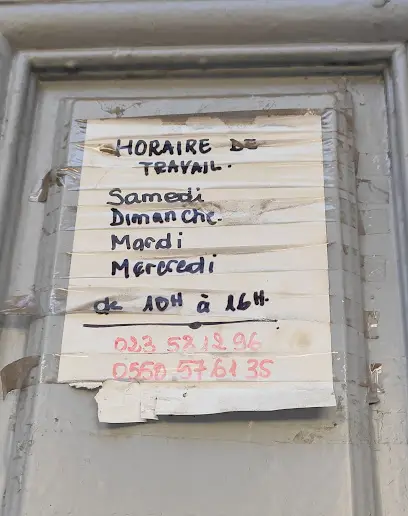 HORAIRE DE
TRAVAIL.
Samedi
Dimanche.
Mardi
Mercredi
de 10H à 16H.
023 52 12 96
0550 57 61 35